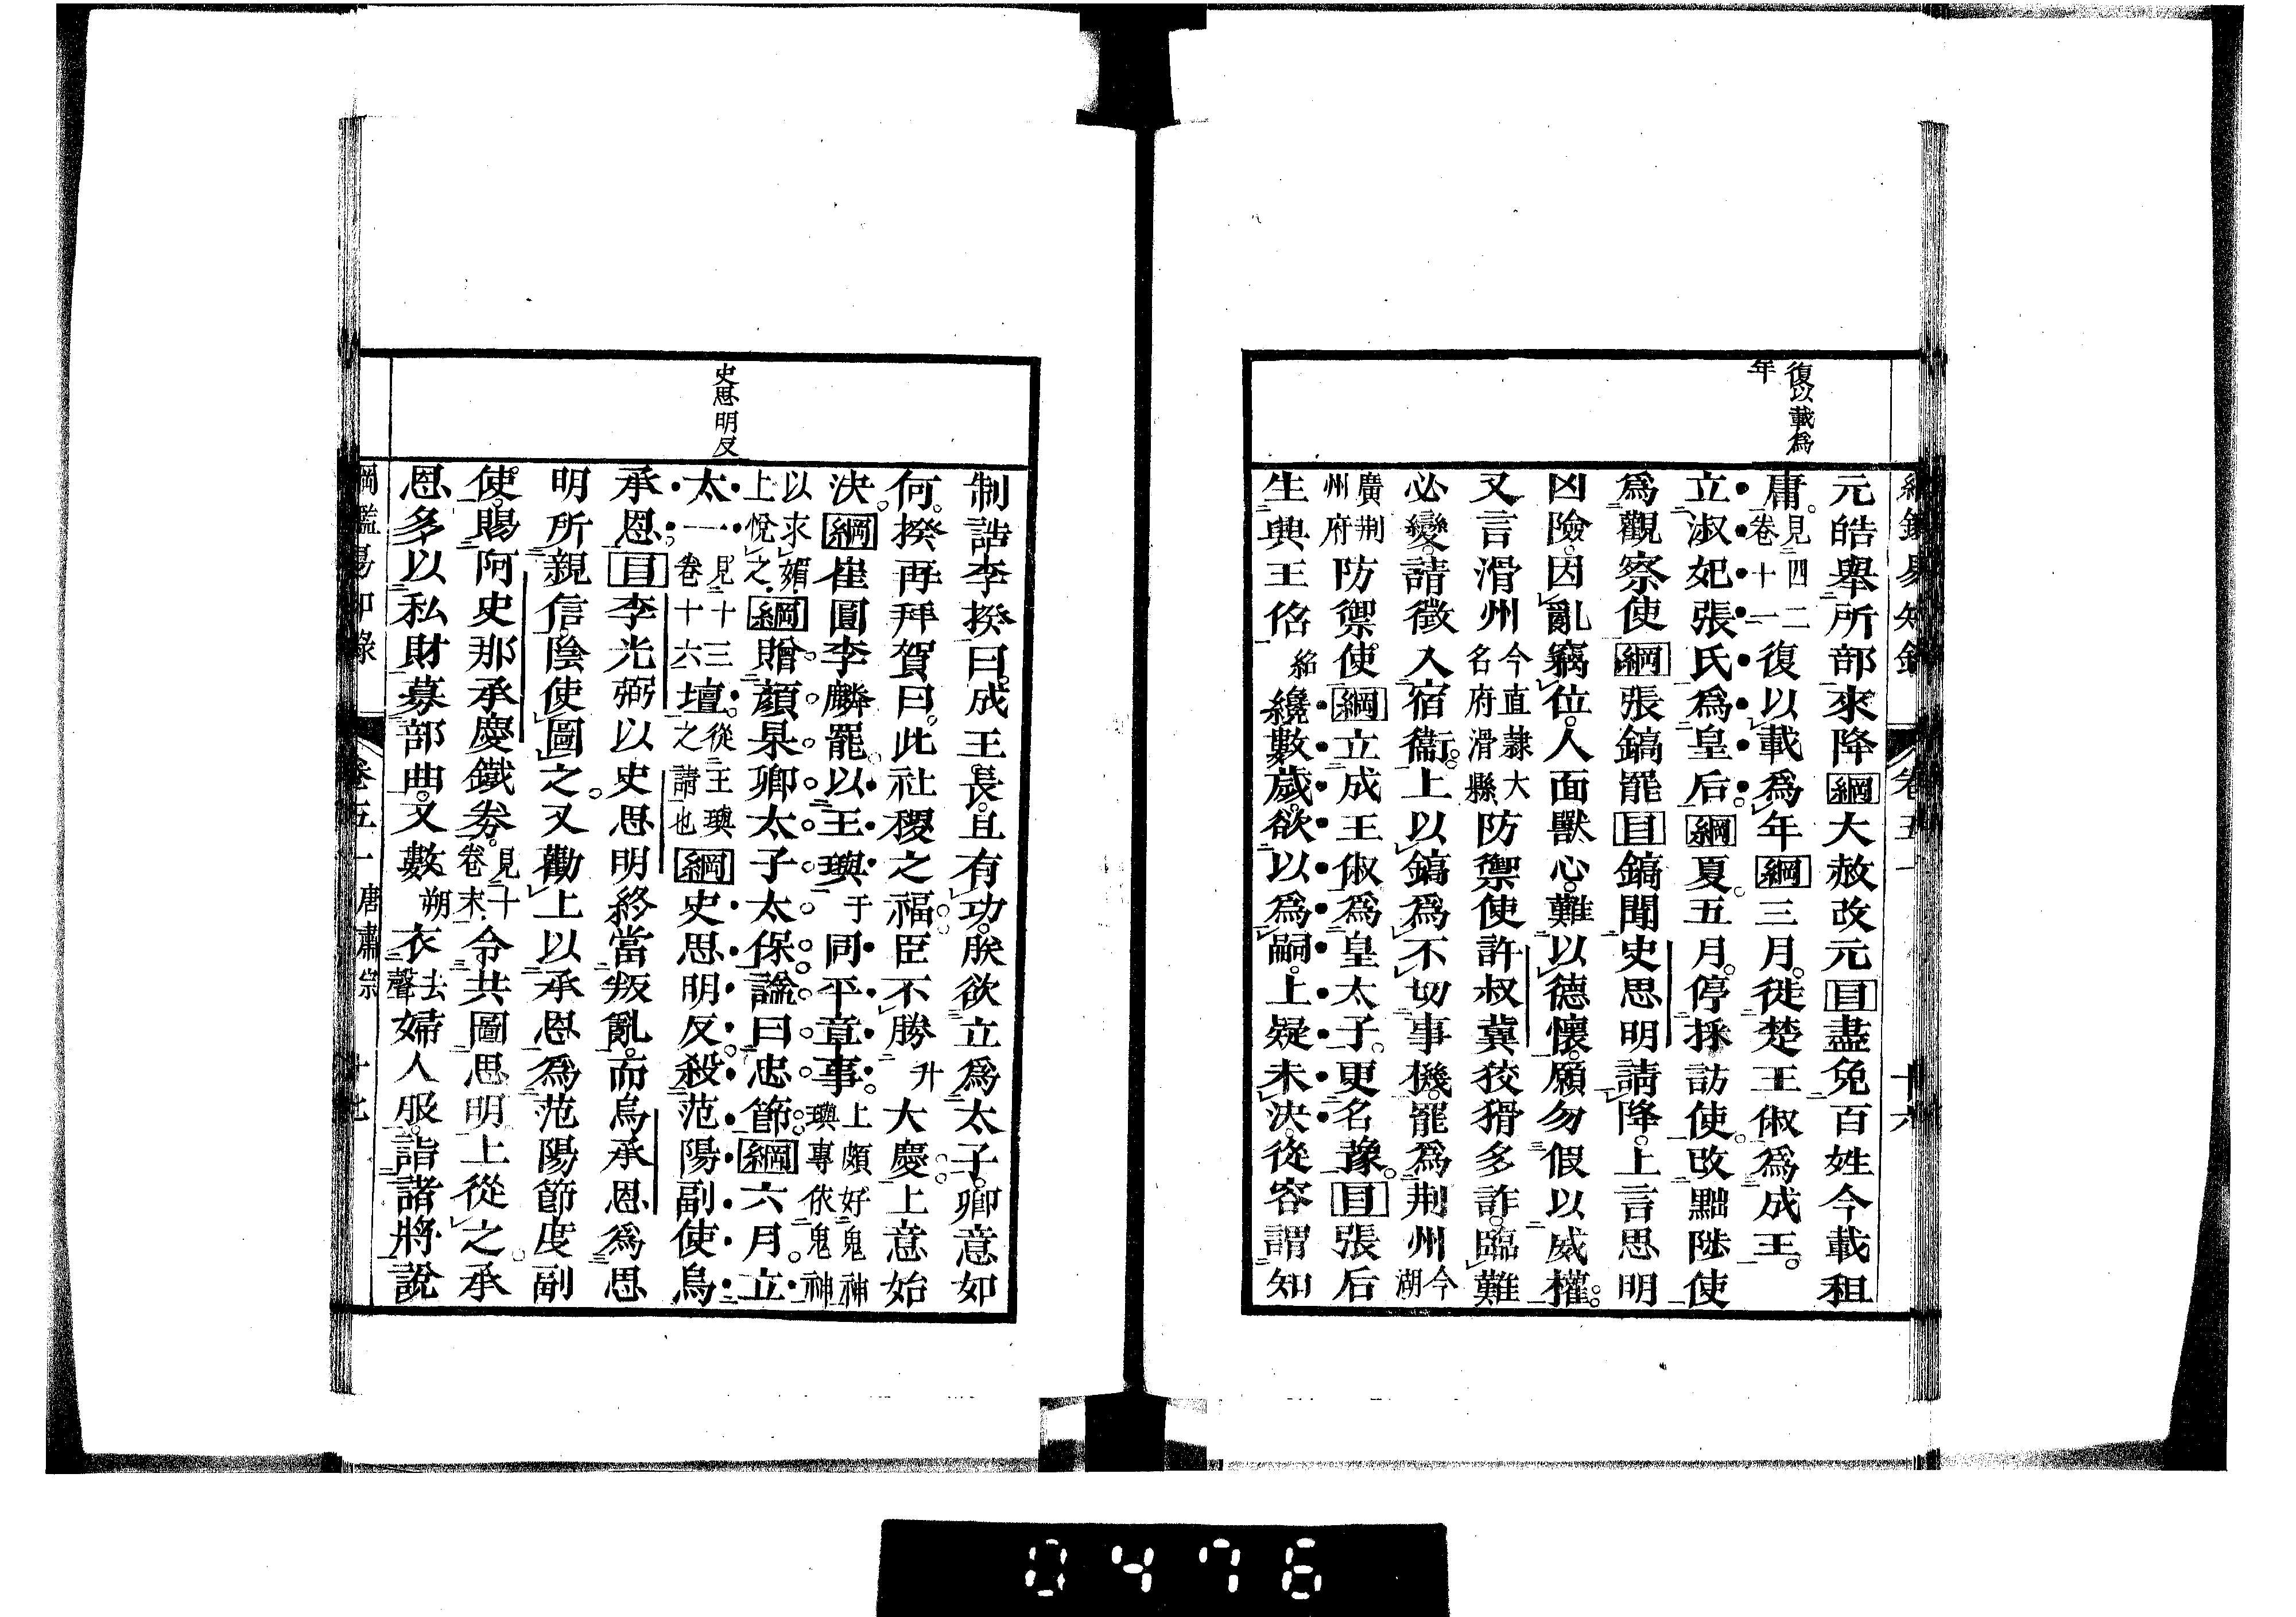 復以載爲
年
元皓舉所部來降綱大赦改元目盡免百姓今載租
庸見四二卷十一復以載爲年綱三月徙楚王俶爲成王
立淑妃張氏爲皇后綱夏五月停採訪使改黜陟使
爲觀察使綱張鎬罷目鎬聞史思明請降上言思明
凶險因亂竊位人面獸心難以德懷願勿假以威權
又言滑州今直隸大名府滑縣防禦使許叔冀狡猾多詐臨難
必變請徵入宿衞上以鎬爲不切事機罷爲荆州今湖
廣荆州府防禦使綱立成王俶爲皇太子更名豫目張后
生興王佋紹纔數歲欲以爲嗣上疑未決從容謂知
卷五十
十六
史思明反
制誥李揆曰成王長且有功朕欲立爲太子卿意如
何揆再拜賀曰此社稷之福臣不勝升大慶上意始
決綱崔圓李麟罷以王璵于同平章事上頗好鬼神璵專依鬼神
以求媚上悅之綱贈顏杲卿太子太保諡曰忠節綱六月立
太一見十三卷十六壇從王璵之請也綱史思明反殺范陽副使烏
承恩目李光弼以史思明終當叛亂而烏承恩爲思
明所親信陰使圖之又勸上以承恩爲范陽節度副
使賜阿史那承慶鐵券見十卷末令共圖思明上從之承
恩多以私財募部曲又數朔衣去聲婦人服詣諸將說
綱鑑易知錄
卷五十
唐肅宗
十七
0476